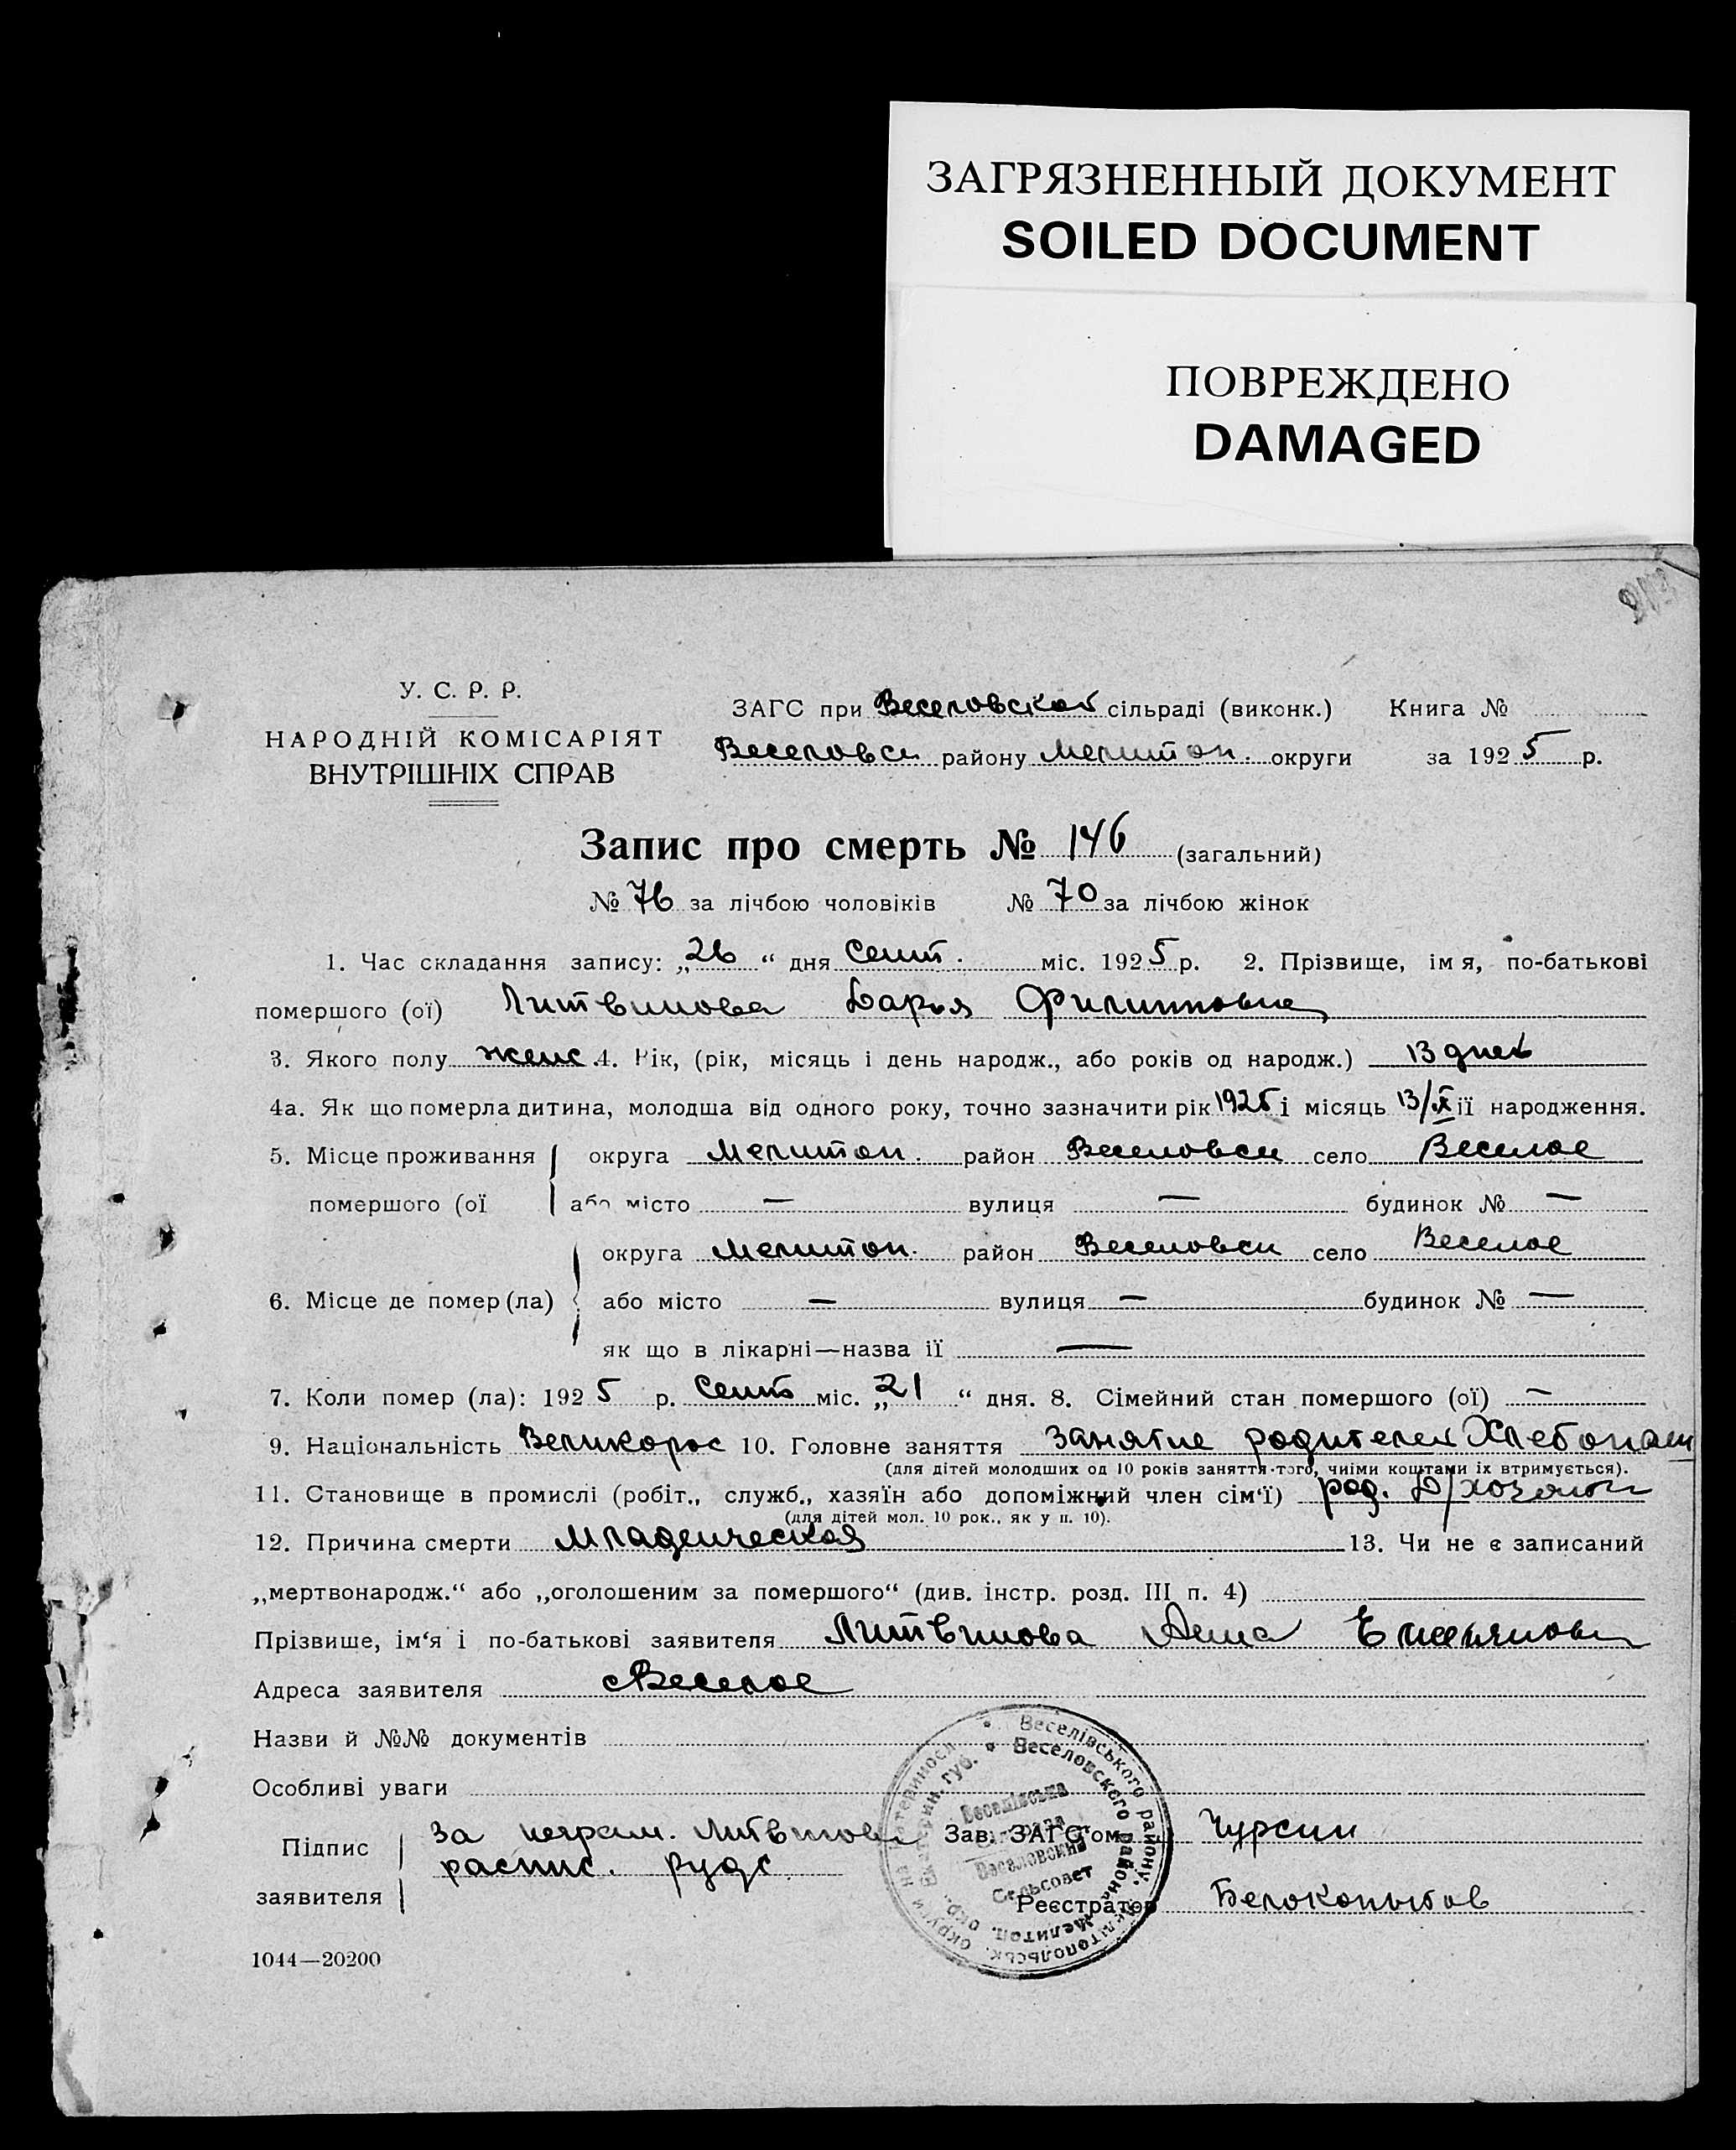 ЗАГРЯЗНЕННЫЙ ДОКУМЕНТ
SOILED DOCUMENT
ПОВРЕЖДЕНО
DAMAGED
У. С. Р. Р.
НАРОДНІЙ КОМІСАРІЯТ
ВНУТРІШНІХ СПРАВ
ЗАГС при Веселовской сільраді (виконк.) Книга №
Веселовск районy Мелитоп. округи за 1925 р.
Запис про смерть № 146 (загальний)
№ 76 за лічбою чоловіків № 70 за лічбою жінок
1. Час складання запису: „26“ дня Сент. міс. 1925 р. 2. Прізвище, імя, по-батькові
помершого (ої) Литвинова Дарья Филипповна
3. Якого полу женс 4. Рік, (рік, місяць і день народж., або років од народж.) 13 дней
4а. Як що померла дитина, молодша від одного року, точно зазначити рік 1925 і місяць 13/IX її народження.
5. Місце проживання округа Мелитоп. район Веселовск село Веселое
помершого (ої або місто — вулиця — будинок № —
округа Мелитоп. район Веселовск село Веселое
6. Місце де помер (ла) або місто — вулиця — будинок № —
як що в лікарні—назва її —
7. Коли помер (ла): 1925 р. Сент міс. „21“ дня. 8. Сімейний стан помершого (ої) —
9. Національність Великорос 10. Головне заняття Занятие родителей Хлебопаш
(для дітей молодших од 10 років заняття того, чиїми коштами їх втримується).
11. Становище в промислі (робіт., служб., хазяїн або допоміжний член сім‘ї) род. Д/хозяин
(для дітей мол. 10 рок., як у п. 10).
12. Причина смерти Младенческая 13. Чи не є записаний
„мертвонародж.“ або „оголошеним за помершого“ (див. інстр. розд. III п. 4)
Прізвище, ім‘я і по-батькові заявителя Литвинова Анна Емельяновн
Адреса заявителя с Веселое
Назви й №№ документів
Особливі уваги
Підпис За неграм. Литвинову Зав. ЗАГС‘ом Чурсин
заявителя распис. Реєстратор Белокопытов
Веселівського району
Веселовского района Мелитоп. окр. Екатерин. губ.
Веселівська
Веселовский
Сельсовет
1044—20200